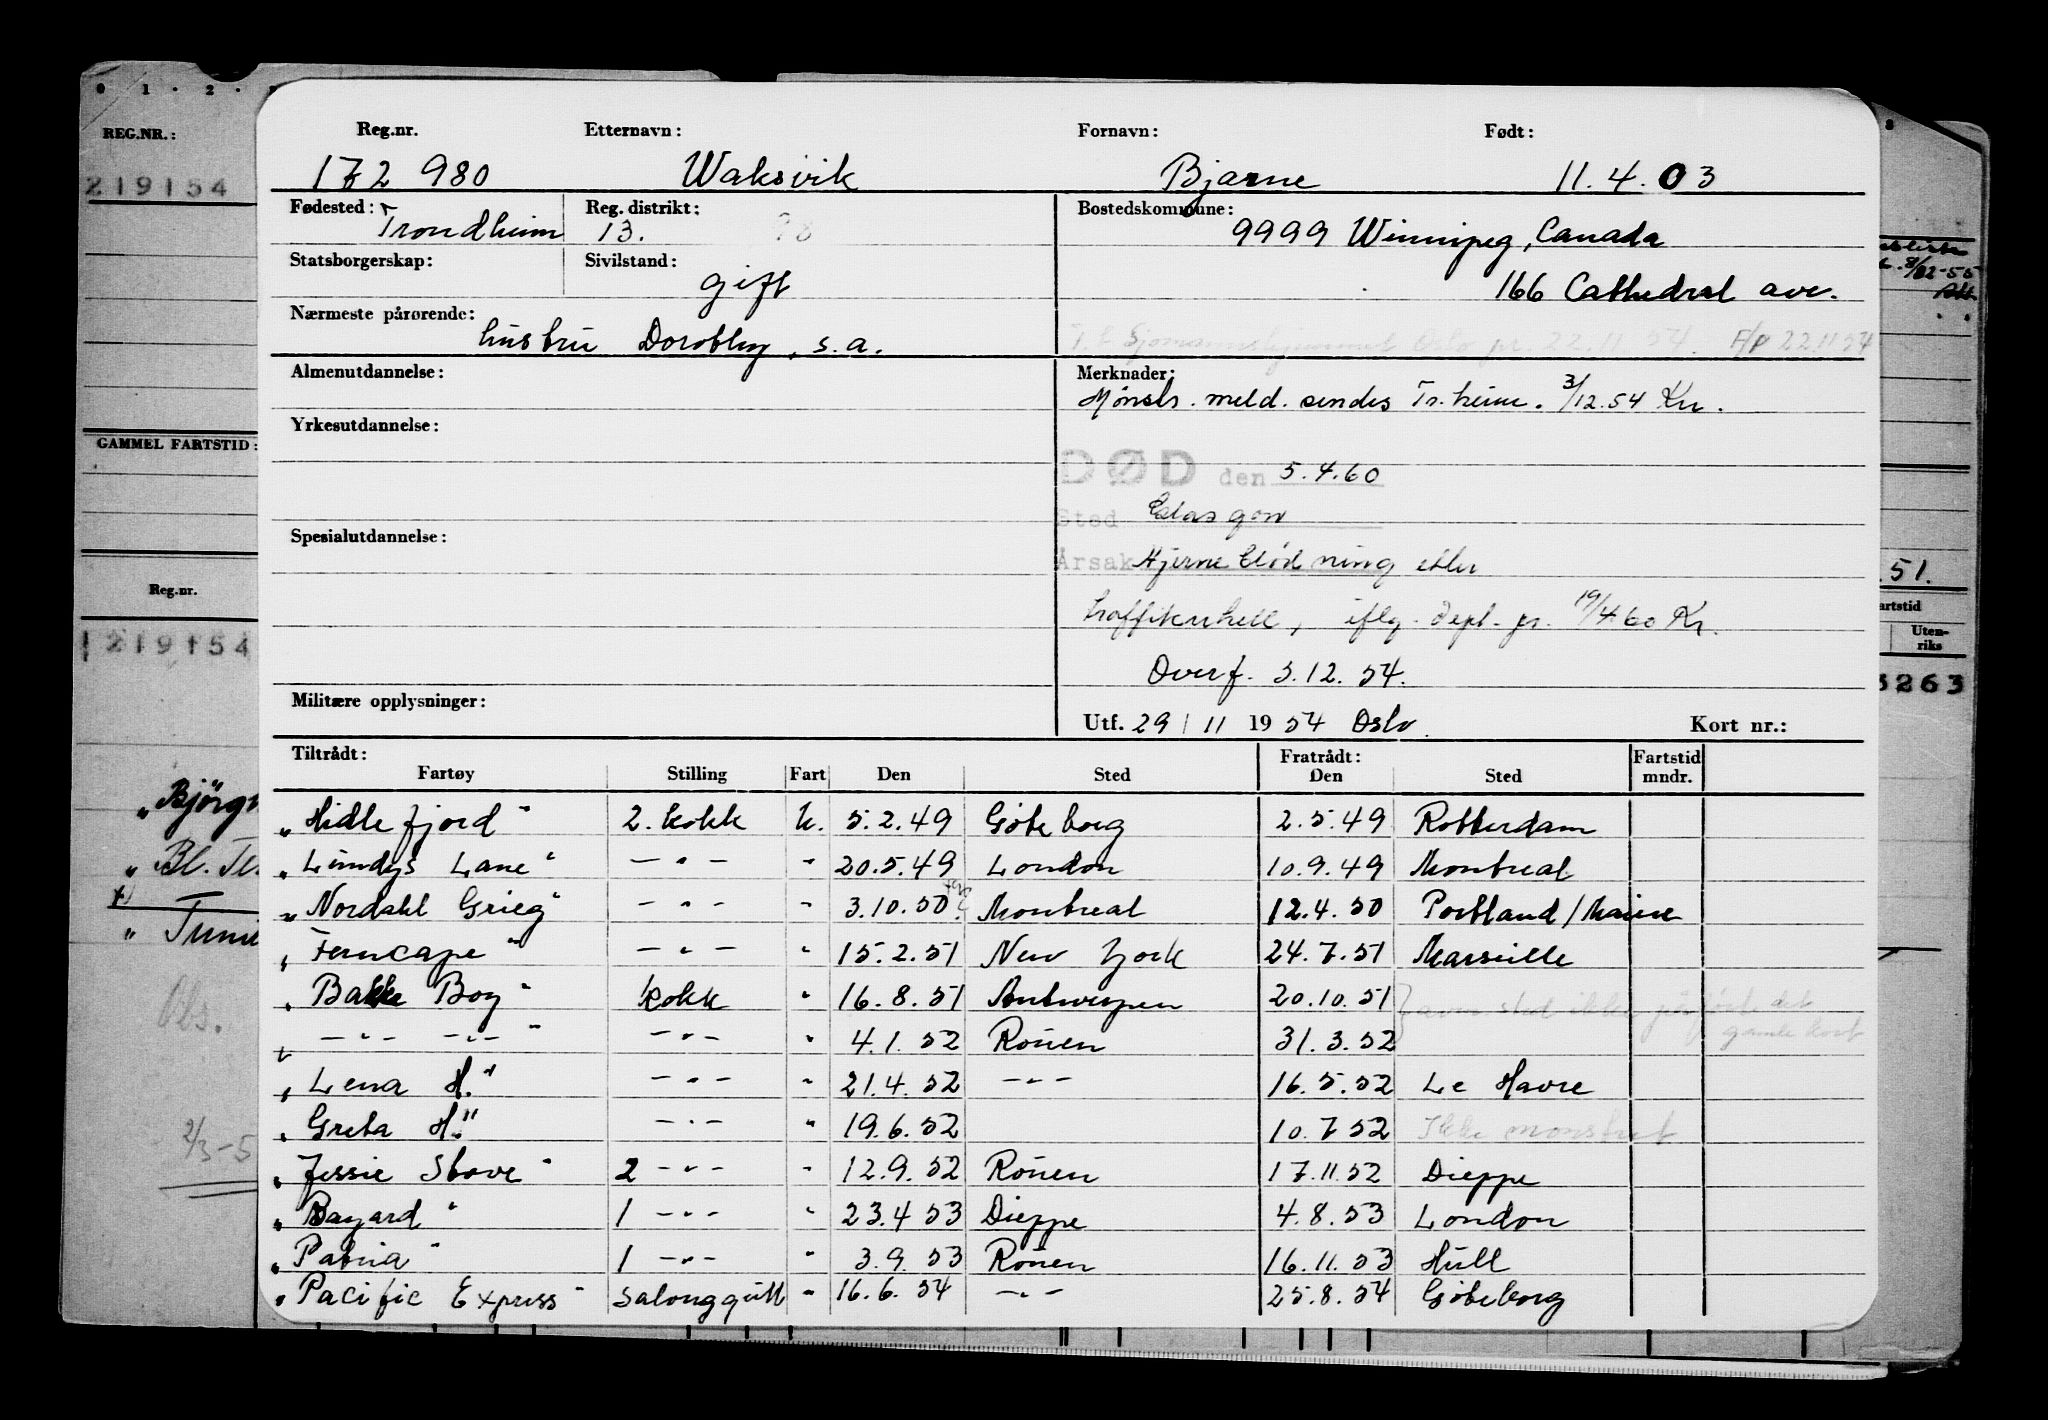 0 1 . 2 .
REG.NR.:
219154
GAMMEL FARTSTID:
Reg.nr.
219154
„Bjørg
„ Bl. Te
„ Tuni
Obs.
2/3-5
Reg.nr. Etternavn: Fornavn: Født:
172 980 Waksvik Bjarne 11.4.03
Fødested: Trondheim Reg. distrikt: 13. Bostedskommune: 9999 Winnipeg, Canada
Statsborgerskap: Sivilstand: gift 166 Cathedral ave.
Nærmeste pårørende: hustru Dorothy, s.a.
22.11.54. F/P 22.11.54
Almenutdannelse: Merknader:
Mønstr. meld. sendes Tr.heim. 3/12.54 Kr.
Yrkesutdannelse:
DØD den 5.4.60
Sted Glasgow
Spesialutdannelse:
Årsak Hjerneblødning eller
traffikuhell, iflg. dept. pr. 19/4.60 Kr.
Overf. 3.12.54.
Militære opplysninger: Utf. 29 / 11 1954 Oslo. Kort nr.:
Tiltrådt: Fratrådt: Fartstid
Fartøy Stilling Fart Den Sted Den Sted mndr.
„Hidlefjord" 2. kokk u. 5.2.49 Göteborg 2.5.49 Rotterdam
„Lundys Lane" — " — " 20.5.49 London 10.9.49 Montreal
„Nordahl Grieg" — " — " 3.10.50 Montreal 12.4.50 Portland/Maine
„Ferncape" — " — " 15.2.51 New York 24.7.51 Marseille
„Bakke Boy" kokk " 16.8.51 Antwerpen 20.10.51
— " — — " — " — " — " 4.1.52 Rouen 31.3.52 gamle kort
„Lena H." — " — " 21.4.52 — " — 16.5.52 Le Havre
„Greta H." — " — " 19.6.52 10.7.52 Ikke mønstret
„Jessie Stove" 2 — " — " 12.9.52 Rouen 17.11.52 Dieppe
„Bayard" 1 — " — " 23.4.53 Dieppe 4.8.53 London
„Patria" 1 — " — " 3.9.53 Rouen 16.11.53 Hull
„Pacific Express" salonggutt " 16.6.54 — " — 25.8.54 Göteborg
8/12-55
51.
artstid
Uten-
riks
3263